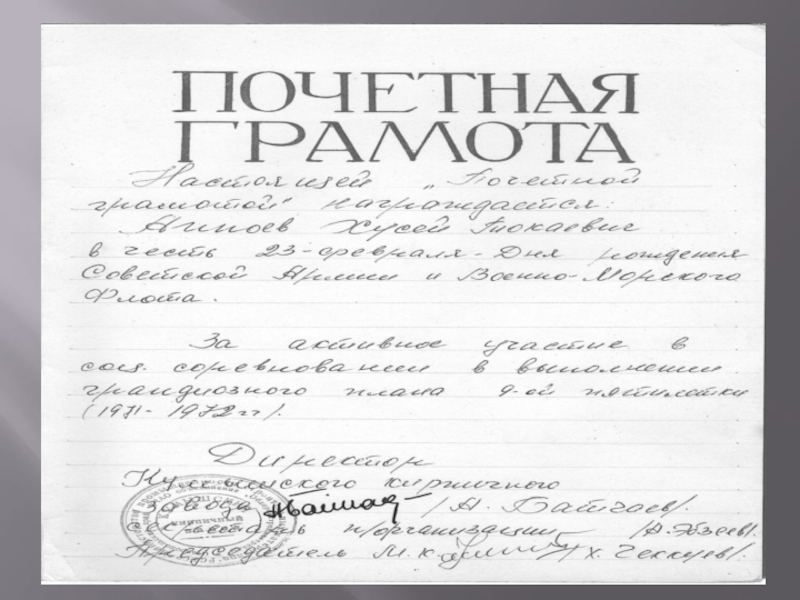 ПОЧЕТНАЯ
ГРАМОТА
Настоящей „Почетной
грамотой" награждается:
Хусей Токаевич
в честь 23-февраля-Дня рождения
Советской Армии и Военно-Морского
Флота.
За активное участие в
соц. соревновании в выполнении
грандиозного плана 9-ой пятилетки
(1971-1972гг).
Директор
кирпичного
завода /А. Батчаев/.
секретарь п/организации /А. Эбзеев/.
Председатель М.К. /Х.